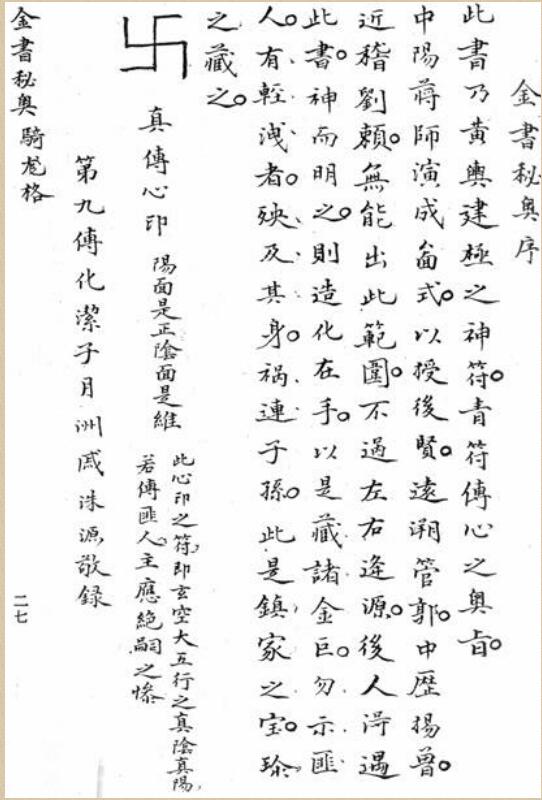 金書秘奧序
此書乃黃輿建極之神符。青符傳心之奧旨。
中陽蔣師演成畣式。以授後賢。遠溯管郭。中歷揚曾。
近稽劉賴。無能出此範圍。不過左右逢源。後人得遇
此書。神而明之。則造化在手。以是藏諸金匞。勿示匪
人。有輕洩者。殃及其身。禍連子孫。此是鎮家之宝。珍
之藏之。
卐
真傳心印 陽面是正陰面是維
此心印之符，即玄空大五行之真陰真陽，
若傳匪人，主應絕嗣之慘
第九傳化潔子月洲戚洙源敬録
金書秘奧騎尨格
二七